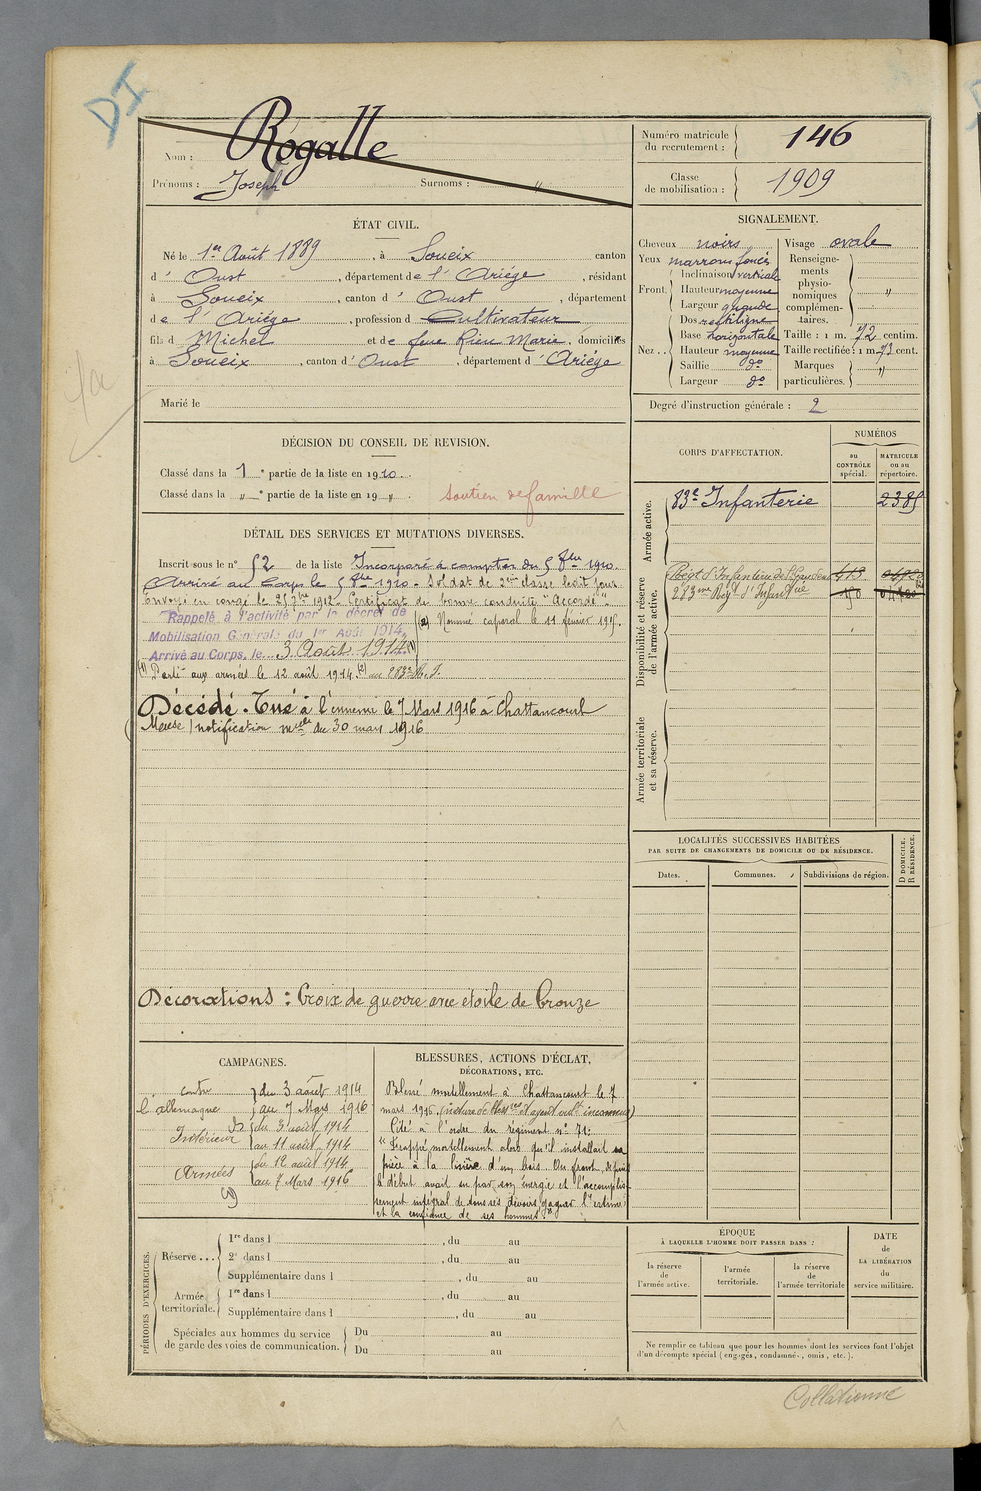 DI
Nom : Rogalle
Prénoms : Joseph Surnoms : "
Numéro matricule du recrutement : 146
Classe de mobilisation : 1909
ÉTAT CIVIL.
Né le 1er Août 1889, à Soueix canton
d' Oust, département de l'Ariége, résidant
à Soueix, canton d' Oust, département
de l'Ariége, profession d Cultivateur
fils d Michel et de feue Rieu Marie, domiciliés
à Soueix, canton d' Oust, département d' Ariége
Marié le
SIGNALEMENT.
Cheveux noirs
Yeux marrons foncés
Front. Inclinaison verticale
Hauteur moyenne
Largeur grande
Nez .. Dos rectiligne
Base horizontale
Hauteur moyenne
Saillie do
Largeur do
Visage ovale
Renseignements physionomiques complémentaires. "
Taille : 1 m. 72 centim.
Taille rectifiée : 1 m 73 cent.
Marques particulières. "
Degré d'instruction générale : 2
DÉCISION DU CONSEIL DE REVISION.
Classé dans la 1e partie de la liste en 1910.
Classé dans la " e partie de la liste en 19 " . soutien de famille
DÉTAIL DES SERVICES ET MUTATIONS DIVERSES.
Inscrit sous le n° 52 de la liste Incorporé à compter du 5 8bre 1910.
Arrivé au Corps le 5 8bre 1910. Soldat de 2me classe ledit jour
Envoyé en congé le 25 7bre 1912. Certificat de bonne conduite "Accordé".
Rappelé à l'activité par le décret de
Mobilisation Générale du 1er Août 1914,
Arrivé au Corps, le 3 Août 1914 (1)
(2) Nommé caporal le 11 février 1915.
(1) Parti aux armées le 12 août 1914. (2) au 283e R. I.
Décédé. Tué à l'ennemi le 7 Mars 1916 à Chattancourt
Meuse / notification mlle du 30 mars 1916
Décorations : Croix de guerre avec étoile de bronze
CORPS D'AFFECTATION.
NUMÉROS
au CONTRÔLE spécial.
MATRICULE ou au répertoire.
Armée active.
83e Infanterie 2385
Disponibilité et réserve de l'armée active.
Régt d'Infanterie de St Gaudens
283me Régt d'Infanterie
Armée territoriale et sa réserve.
LOCALITÉS SUCCESSIVES HABITÉES
PAR SUITE DE CHANGEMENTS DE DOMICILE OU DE RÉSIDENCE.
Dates.
Communes.
Subdivisions de région.
D DOMICILE.
R RÉSIDENCE.
CAMPAGNES.
contre l'allemagne du 3 août 1914
au 7 Mars 1916
Intérieur du 3 août 1914
au 11 août 1914
Armées du 12 août 1914
au 7 Mars 1916
BLESSURES, ACTIONS D'ÉCLAT,
DÉCORATIONS, ETC.
Blessé mortellement à Chattancourt le 7
mars 1916, (nature de blessres et agent vult inconnus)
Cité à l'ordre du régiment n° 71:
"Frappé mortellement alors qu'il installait sa
pièce à la lisière d'un bois. Au front, depuis
le début avait su par son énergie et l'accomplis-
sement intégral de tous ses devoirs gagner l'estime
et la confiance de ses hommes."
PÉRIODES D'EXERCICES.
Réserve ...
1re dans l , du au
2e dans l , du au
Supplémentaire dans l , du au
Armée territoriale.
1re dans l , du au
Supplémentaire dans l , du au
Spéciales aux hommes du service de garde des voies de communication.
Du au
Du au
ÉPOQUE
À LAQUELLE L'HOMME DOIT PASSER DANS :
la réserve de l'armée active.
l'armée territoriale.
la réserve de l'armée territoriale
DATE de LA LIBÉRATION du service militaire.
Ne remplir ce tableau que pour les hommes dont les services font l'objet
d'un décompte spécial (engagés, condamnés, omis, etc.).
Collationné